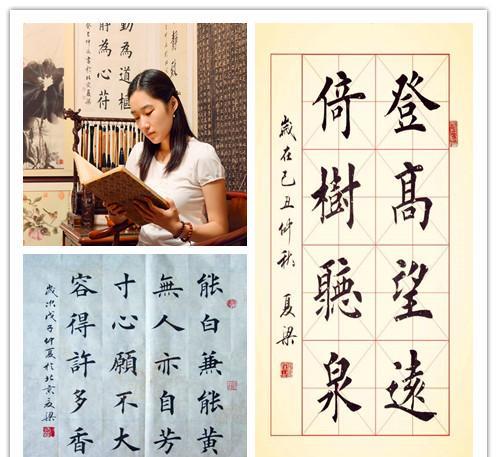 動為道樞
靜為心苻
能白兼能黃
無人亦自芳
寸心願不大
容得許多香
歲次戊子仲夏於北京夏梁
登髙望遠
倚樹聽泉
歲在己丑仲秋 夏梁